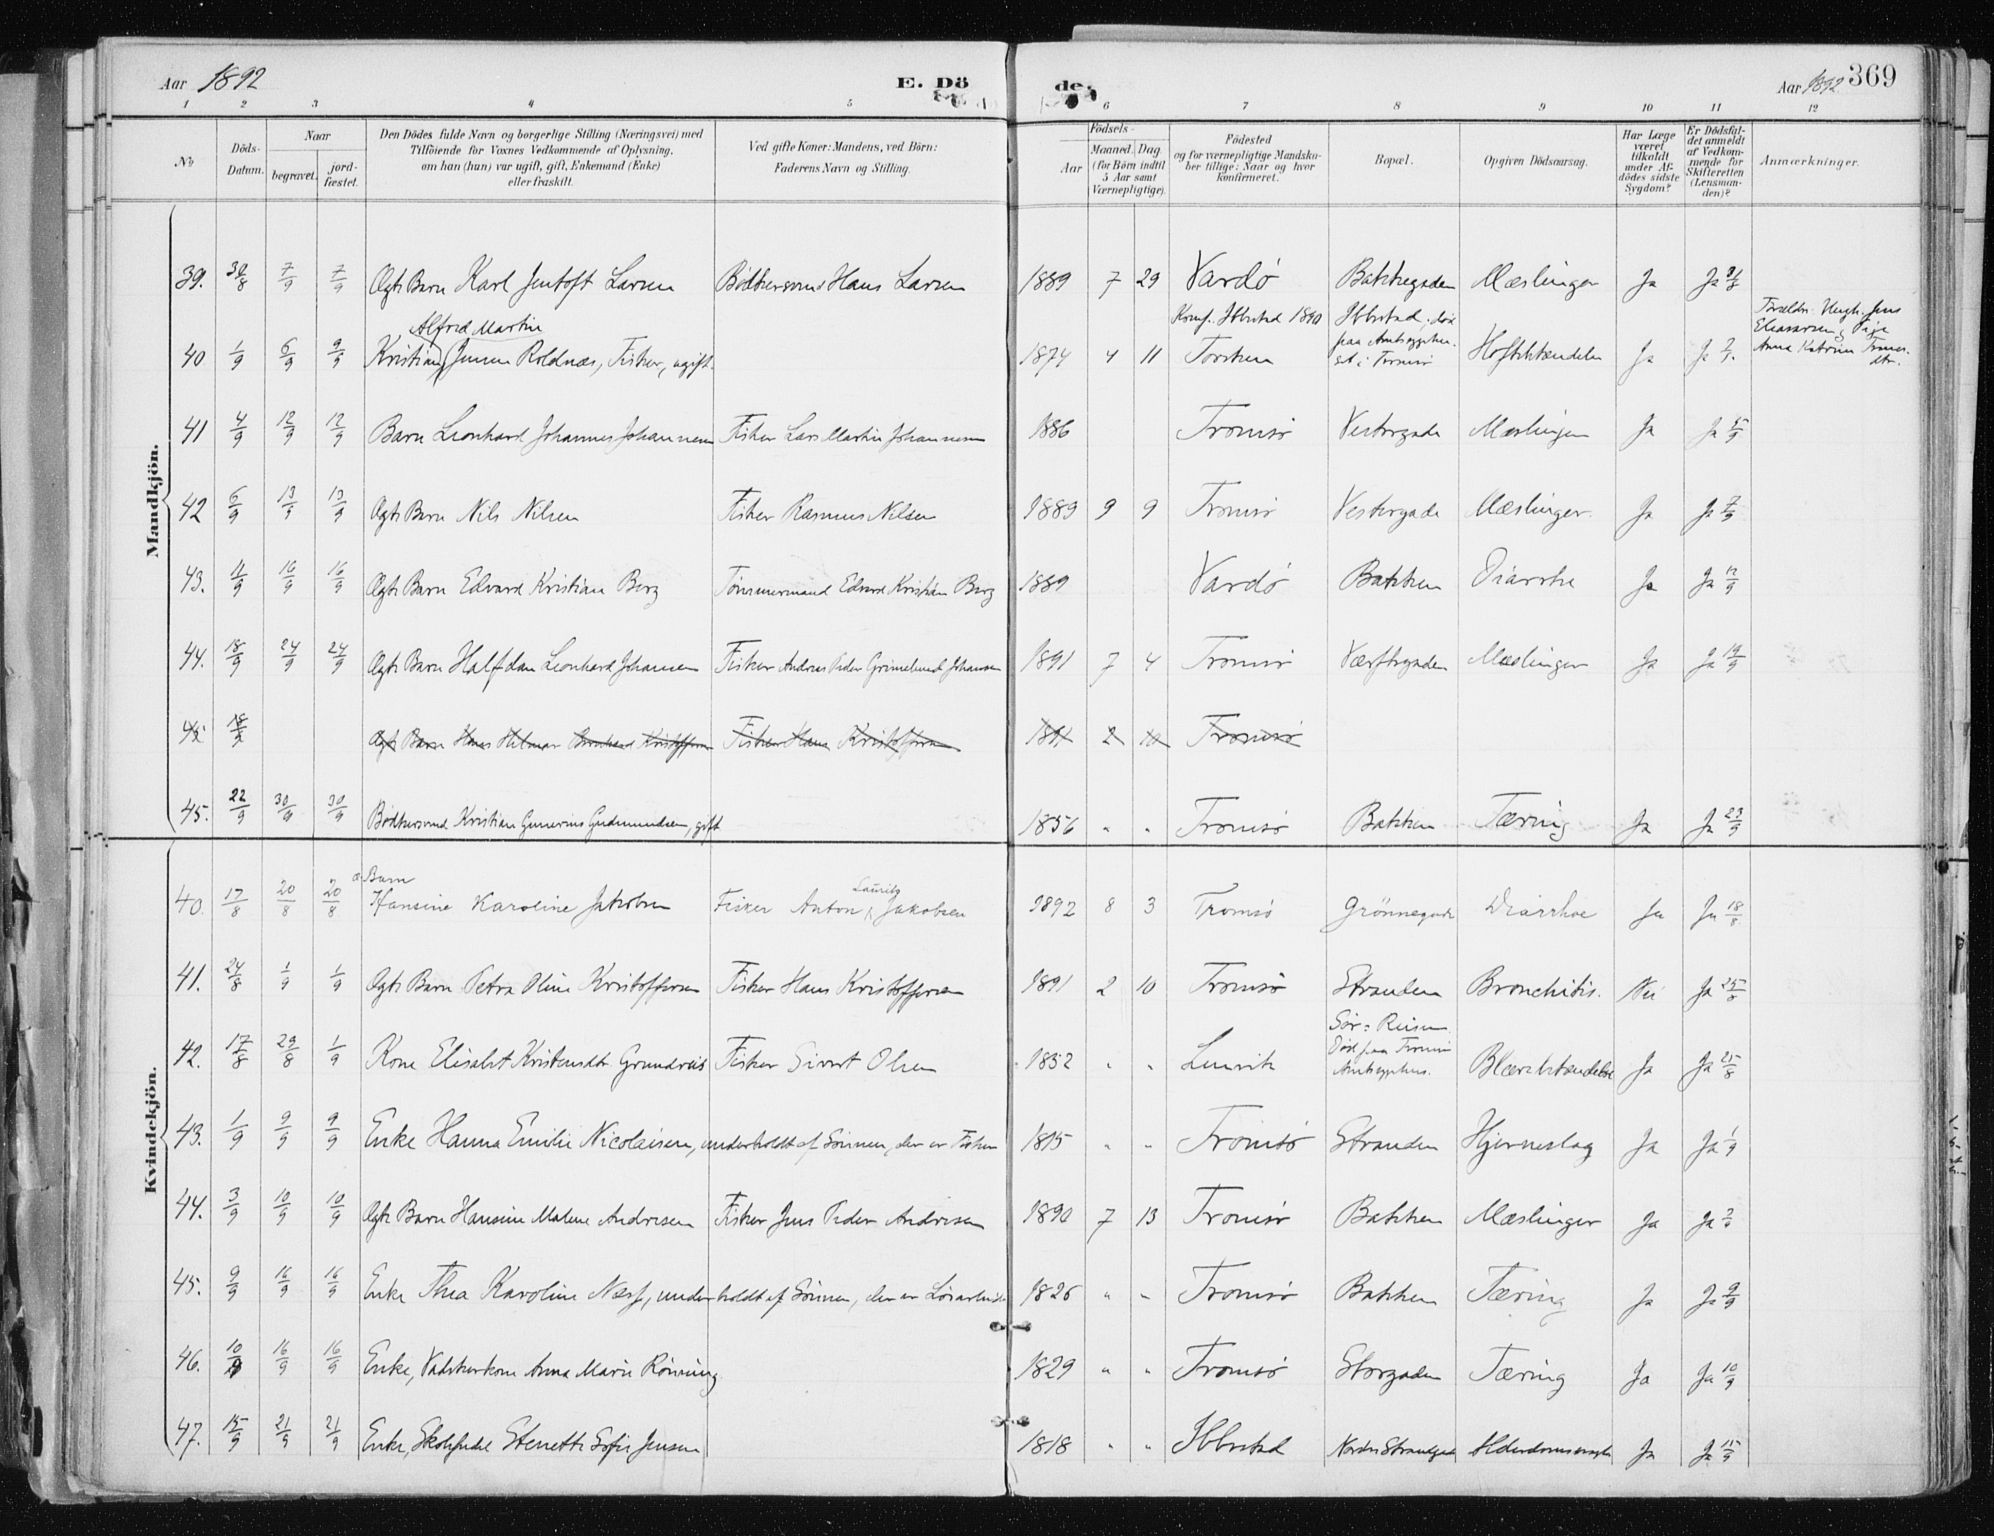 Aar 1892
E. Döde.
Aar 1892
369
1 2 3 4 5 6 7 8 9 10 11 12
No
Döds-Datum.
Naar
begravet.
jord-fæstet.
Den Dödes fulde Navn og borgerlige Stilling (Næringsvei) med
Tilföiende for Voxnes Vedkommende af Oplysning,
om han (hun) var ugift, gift, Enkemand (Enke)
eller fraskilt.
Ved gifte Koner: Mandens, ved Börn:
Faderens Navn og Stilling.
Födsels-
Aar
Maaned. Dag
(for Börn indtil
5 Aar samt
Værnepligtige).
Födested
og for værnepligtige Mandska-
ber tillige: Naar og hvor
konfirmeret.
Bopæl.
Opgiven Dödsaarsag.
Har Læge
været
tilkaldt
under Af-
dödes sidste
Sygdom?
Er Dödsfal-
det anmeldt
af Vedkom-
mende for
Skifteretten
(Lensman-
den)?
Anmærkninger.
Mandkjön.
39. 30/8 7/9 7/9 Ægte Barn Karl Jentoft Larsen Bødkersvend Hans Larsen 1889 7 29 Vardø Bakkegaden Mæslinger Ja Ja 31/8
Alfred Martin Konf. Ibbestad 1890 Ibbestad, død
40 1/9 6/9 9/9 Kristian Jensen Roldnæs, Fisker, ugift. 1874 4 11 Torsken paa Amtssygehu-
set i Tromsø Hoftebetændelse Ja Ja 2/9
Anna Katrine
41 4/9 12/9 12/9 Barn Leonhard Johannes Johannesen Fisker Lars Martin Johannesen 1886 Tromsø Vestergade Mæslinger Ja Ja 5/9
42 6/9 13/9 13/9 Ægte Barn Nils Nilsen Fisker Rasmus Nilsen 1889 9 9 Tromsø Vestergade Mæslinger Ja Ja 7/9
43. 11/9 16/9 16/9 Ægte Barn Edvard Kristian Berg Tømmermand Edvard Kristian Berg 1889 Vardø Bakken Diarrhe Ja Ja 12/9
44. 18/9 24/9 24/9 Ægte Barn Halfdan Leonhard Johansen Fisker Andreas Peder Grimelund Johansen 1891 7 4 Tromsø Værftsgaden Mæslinger Ja Ja 19/9
45 Ægte Barn Hans Hilmar Bernhard Kristoffersen Fisker Hans Kristoffersen 1891 2 10 Tromsø
45. 22/9 30/9 30/9 Bødkersvend Kristian Gunerius Gudmundsen, gift 1856 " " Tromsø Bakken Tæring Ja Ja 23/9
Kvindekjön.
40. 17/8 20/8 20/8 æ. Barn Hansine Karoline Jakobsen Fisker Anton Laurits Jakobsen 1892 8 3 Tromsø Grönnegade Diarrhoe Ja Ja 18/8
41. 24/8 1/9 1/9 Ægte Barn Petra Oline Kristoffersen Fisker Hans Kristoffersen 1891 2 10 Tromsø Stranden Bronchitis. Nei Ja 25/8
Sør-Reisen.
Død paa Tromsø
Amtssygehus.
42. 17/8 29/8 1/9 Kone Elisabet Kristensdtr Grundnæs Fisker Sivert Olsen 1852 " " Lenvik Blærebetændelse Ja Ja 25/8
43. 1/9 9/9 9/9 Enke Hanna Emilie Nicolaisen, underholdt af Sønnen, der er Fisker 1815 " " Tromsø Stranden Hjerneslag Ja Ja 1/9
44. 3/9 10/9 10/9 Ægte Barn Hansine Malene Andresen Fisker Jens Peder Andresen 1890 7 13 Tromsø Bakken Mæslinger Ja Ja
45. 9/9 16/9 16/9 Enke Thea Karoline Næss, underholdt af Sønnen, der er Løsarbeider 1826 " " Tromsø Bakken Tæring Ja Ja 9/9
46. 10/9 16/9 16/9 Enke, Vaskerkone Anna Marie Rønning 1829 " " Tromsø Storgaden Tæring Ja Ja 10/9
47. 15/9 21/9 21/9 Enke, Stenette Sofie Jensen 1818 " " Ibbestad Nordre Strandgade Alderdomssvaghed Ja Ja 15/9